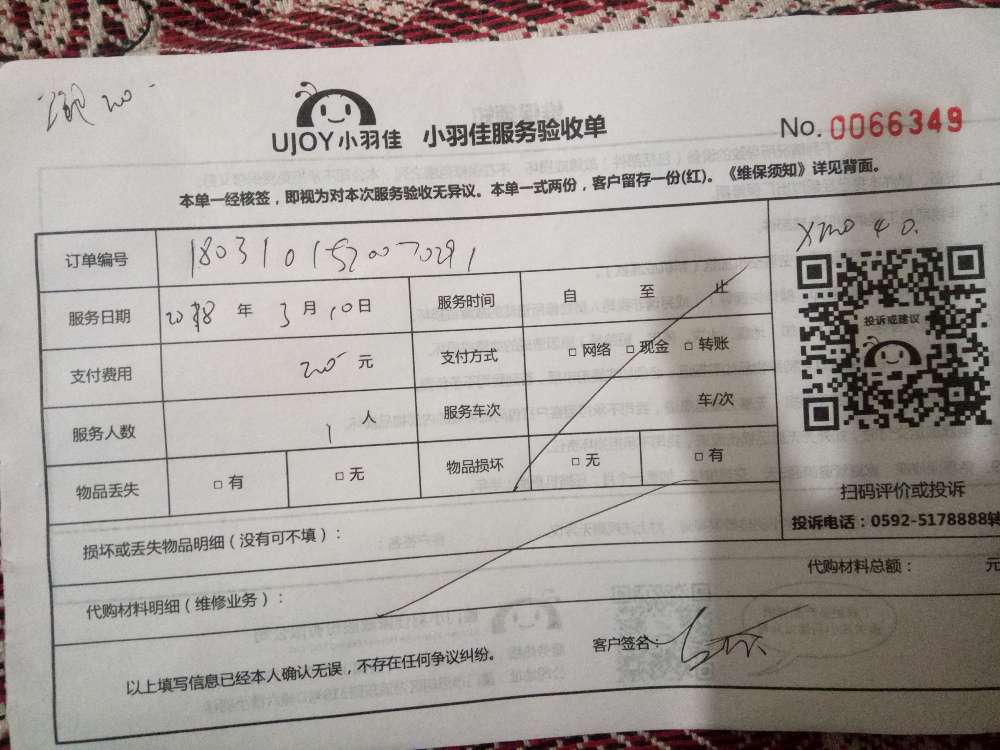 UJOY小羽佳 小羽佳服务验收单
No. 0066349
本单一经核签，即视为对本次服务验收无异议。本单一式两份，客户留存一份(红)。《维保须知》详见背面。
订单编号
服务日期 2018 年 3 月 10 日 服务时间 自 至 止
支付费用 200 元 支付方式 □ 网络 □ 现金 □ 转账
服务人数 1 人 服务车次 车/次
物品丢失 □ 有 □ 无 物品损坏 □ 无 □ 有
投诉或建议
扫码评价或投诉
投诉电话：0592-5178888转
损坏或丢失物品明细（没有可不填）：
代购材料明细（维修业务）：
代购材料总额： 元
以上填写信息已经本人确认无误，不存在任何争议纠纷。
客户签名：